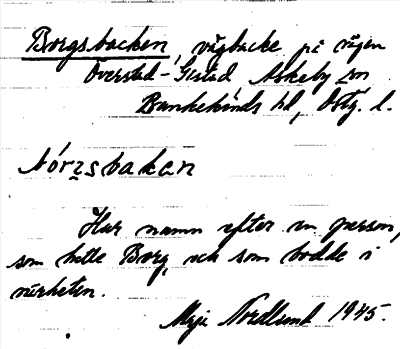 Borgsbacken, vägbacke på vägen
Överstad - Gistad Askeby sn
Bankekinds hd, Östg. l.
Nórzsbakan
Har namn efter en person,
som hette Borg, och som bodde i
närheten.
Nordlund 1945.